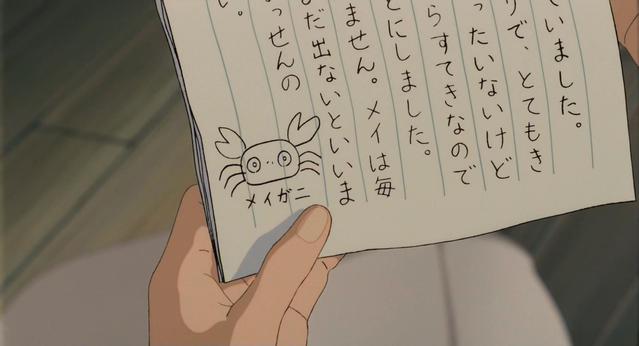 ていました。
りで、とてもき
ったいないけど
らすてきなので
とにしました。
ません。メイは毎
だ出ないといいま
っせんの
い。
メイガニ